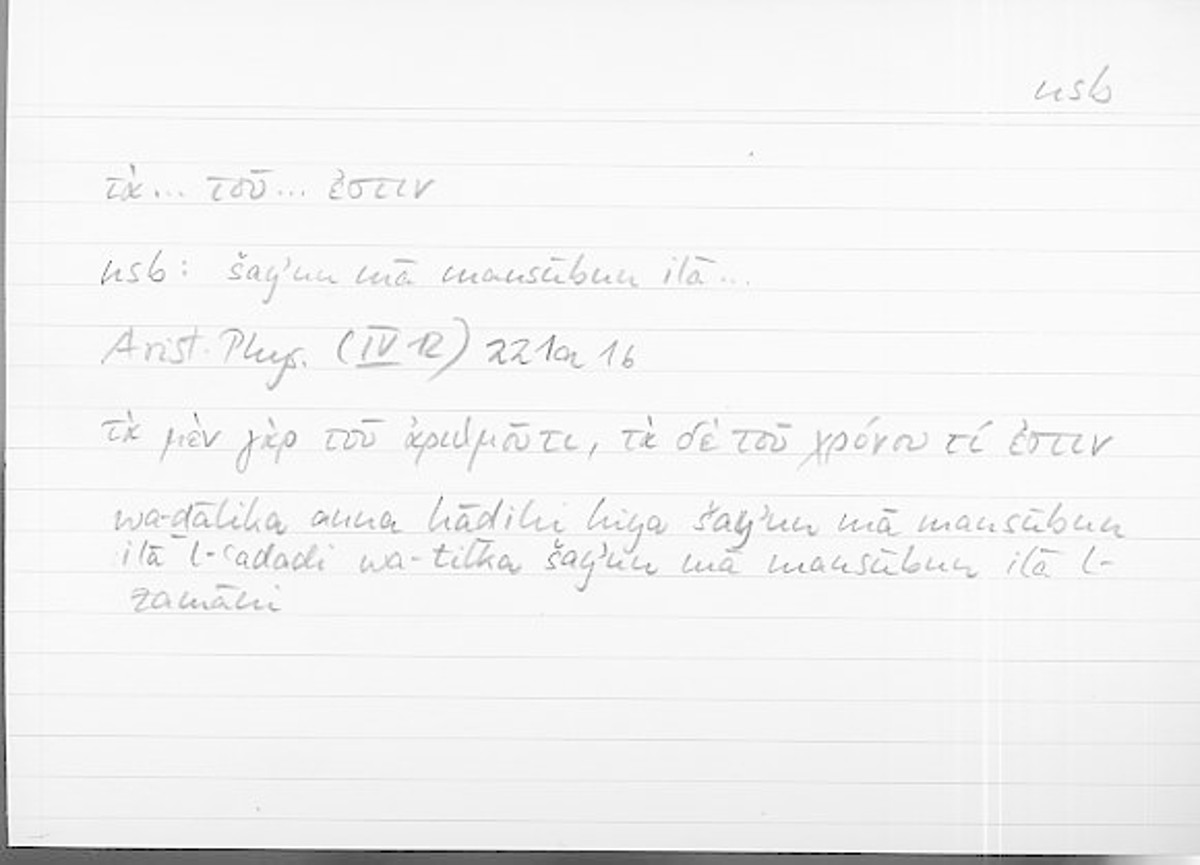 nsb
τὰ... τοῦ... ἐστιν
nsb: šay'un mā mansūbun ilā...
Arist. Phys. (IV 12) 221a 16
τὰ μὲν γὰρ τοῦ ἀριθμοῦ τι, τὰ δὲ τοῦ χρόνου τί ἐστιν
wa-ḏālika anna hāḏihi hiya šay'un mā mansūbun
ilā l-ʿadadi wa-tilka šay'un mā mansūbun ilā l-
zamāni